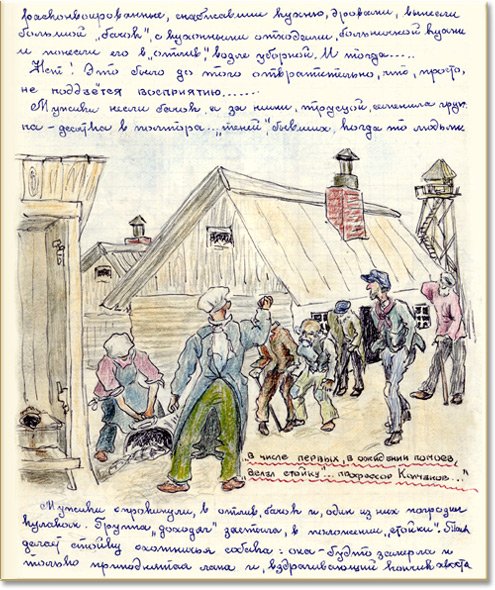 расконвоированные, снабжавшие кухню, дровами, вынесли
большой „бачок", с кухонными отходами, больничной кухни
и понесли его в „отлив", возле уборной. И тогда.....
Нет! Это было до того отвратительно, что, просто,
не поддаётся восприятию.......
Мужики несли бачок, а за ними, трусцой, семенила груп-
па – десятка в полтора... „теней", бывших, когда то людьми
„в числе первых, в ожидании помоев,
делал стойку"... профессор
Мужики опрокинули, в отлив, бачок и, один из них погрозил
кулаком. Группа „доходяг" застыла, в положении „стойки". Так
делает стойку охотничья собака: она – будто замерла и
только приподнятая лапа и, вздрагивающий кончик хвоста